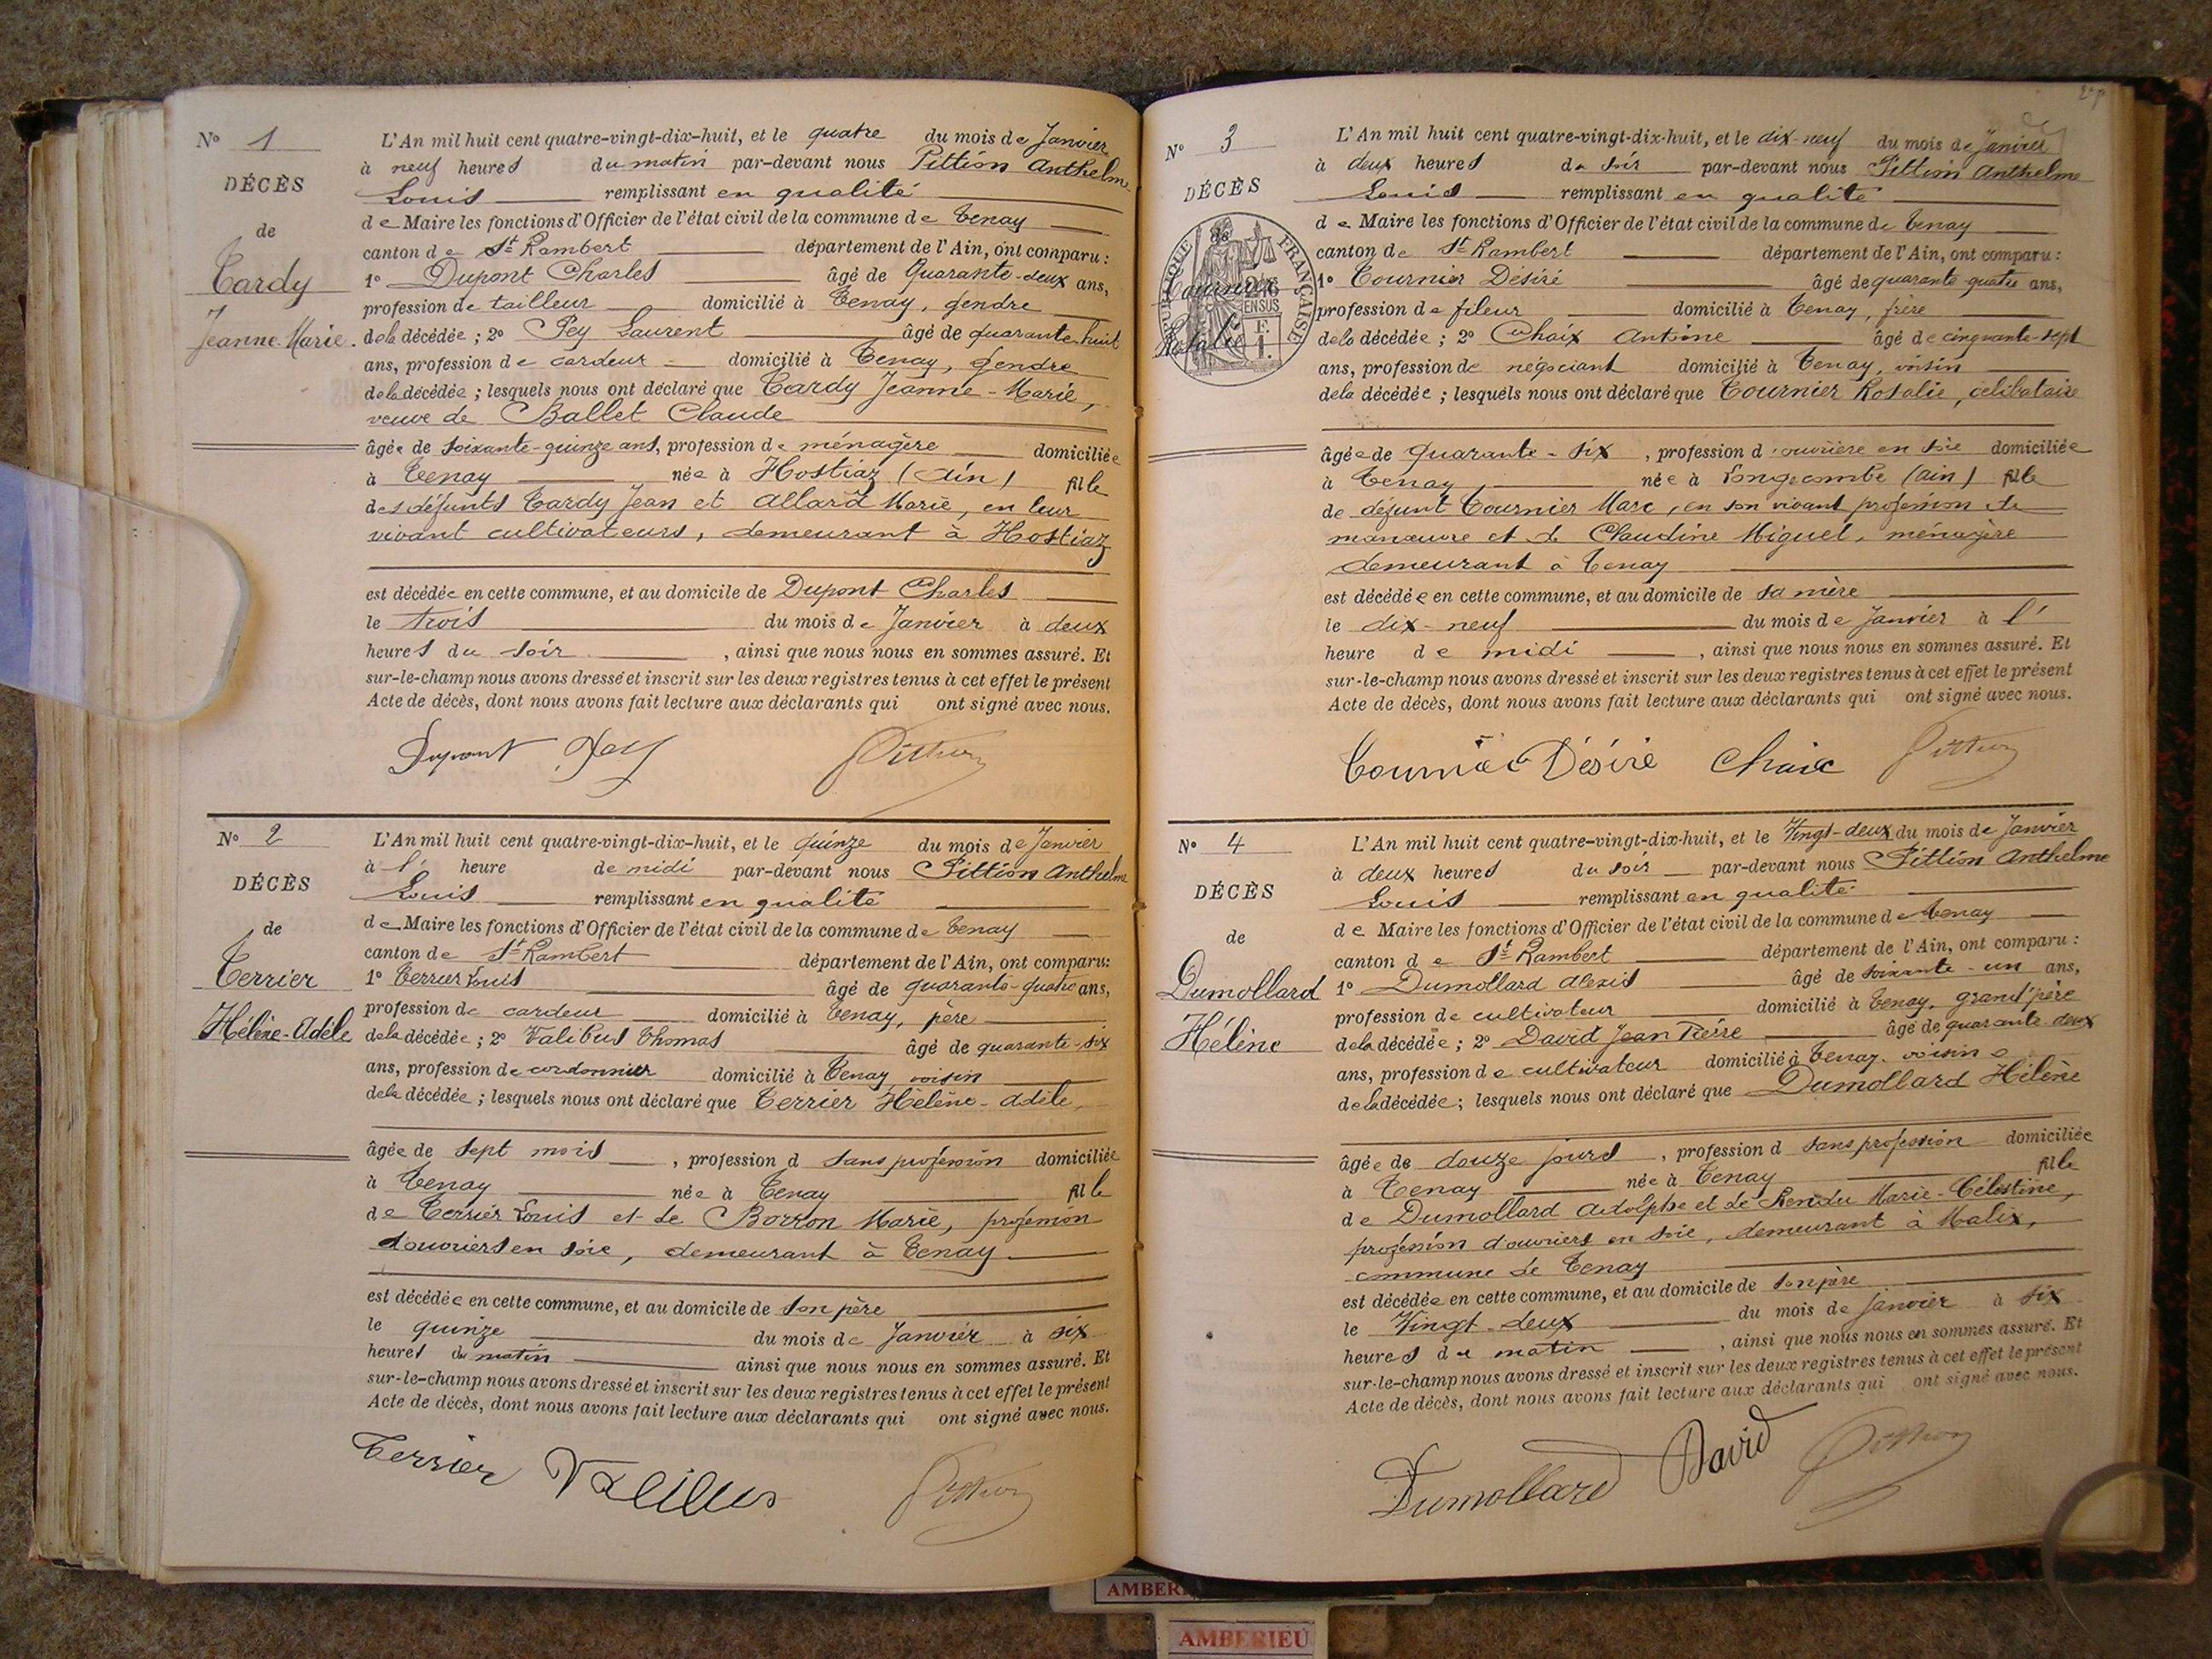 N° 1
DÉCÈS
de
Tardy
Jeanne-Marie.
L'An mil huit cent quatre-vingt-dix-huit, et le quatre du mois de Janvier
à neuf heures du matin par-devant nous Pittion Anthelme
Louis remplissant en qualité
de Maire les fonctions d'Officier de l'état civil de la commune de Tenay
canton de St Rambert département de l'Ain, ont comparu :
1° Dupont Charles âgé de Quarante-deux ans,
profession de tailleur domicilié à Tenay, gendre
de la décédée ; 2° Pey Laurent âgé de quarante-huit
ans, profession de cardeur domicilié à Tenay, gendre
de la décédée ; lesquels nous ont déclaré que Tardy Jeanne-Marie,
veuve de Ballet Claude
âgée de soixante-quinze ans, profession de ménagère domiciliée
à Tenay née à Hostiaz (Ain) fille
des défunts Tardy Jean et Allard Marie, en leur
vivant cultivateurs, demeurant à Hostiaz
est décédée en cette commune, et au domicile de Dupont Charles
le trois du mois de Janvier à deux
heures du soir , ainsi que nous nous en sommes assuré. Et
sur-le-champ nous avons dressé et inscrit sur les deux registres tenus à cet effet le présent
Acte de décès, dont nous avons fait lecture aux déclarants qui ont signé avec nous.
Dupont Pey Pittion
N° 2
DÉCÈS
de
Terrier
Hélène-Adèle
L'An mil huit cent quatre-vingt-dix-huit, et le quinze du mois de Janvier
à l' heure de midi par-devant nous Pittion Anthelme
Louis remplissant en qualité
de Maire les fonctions d'Officier de l'état civil de la commune de Tenay
canton de St Rambert département de l'Ain, ont comparu:
1° Terrier Louis âgé de quarante-quatre ans,
profession de cardeur domicilié à Tenay, père
de la décédée ; 2° Valibus Thomas âgé de quarante-six
ans, profession de cordonnier domicilié à Tenay, voisin
de la décédée ; lesquels nous ont déclaré que Terrier Hélène-Adèle,
âgée de sept mois , profession d sans profession domiciliée
à Tenay née à Tenay fille
de Terrier Louis et de Borron Marie, profession
d'ouvriers en soie, demeurant à Tenay
est décédée en cette commune, et au domicile de son père
le quinze du mois de Janvier à six
heures du matin ainsi que nous nous en sommes assuré. Et
sur-le-champ nous avons dressé et inscrit sur les deux registres tenus à cet effet le présent
Acte de décès, dont nous avons fait lecture aux déclarants qui ont signé avec nous.
Terrier Valibus Pittion
N° 3
DÉCÈS
de
Tournier
Rosalie
L'An mil huit cent quatre-vingt-dix-huit, et le dix-neuf du mois de Janvier
à deux heures du soir par-devant nous Pittion Anthelme
Louis remplissant en qualité
de Maire les fonctions d'Officier de l'état civil de la commune de Tenay
canton de St Rambert département de l'Ain, ont comparu :
1° Tournier Désiré âgé de quarante quatre ans,
profession de fileur domicilié à Tenay, frère
de la décédée ; 2° Chaix Antoine âgé de cinquante-sept
ans, profession de négociant domicilié à Tenay, voisin
de la décédée ; lesquels nous ont déclaré que Tournier Rosalie, célibataire
âgée de Quarante-six , profession d'ouvrière en soie domiciliée
à Tenay, née à Longecombe (Ain) fille
de défunt Tournier Marc, en son vivant profession de
manœuvre et de Claudine Miguet, ménagère
demeurant à Tenay
est décédée en cette commune, et au domicile de sa mère
le dix-neuf du mois de Janvier à l'
heure de midi , ainsi que nous nous en sommes assuré. Et
sur-le-champ nous avons dressé et inscrit sur les deux registres tenus à cet effet le présent
Acte de décès, dont nous avons fait lecture aux déclarants qui ont signé avec nous.
Tournier Désiré Chaix Pittion
N° 4
DÉCÈS
de
Dumollard
Hélène
L'An mil huit cent quatre-vingt-dix-huit, et le Vingt-deux du mois de Janvier
à deux heures du soir par-devant nous Pittion Anthelme
Louis remplissant en qualité
de Maire les fonctions d'Officier de l'état civil de la commune de Tenay
canton de St Rambert département de l'Ain, ont comparu :
1° Dumollard Alexis âgé de soixante-un ans,
profession de cultivateur domicilié à Tenay, grand'père
de la décédée ; 2° David Jean Pierre âgé de quarante-deux
ans, profession de cultivateur domicilié à Tenay, voisin
de la décédée ; lesquels nous ont déclaré que Dumollard Hélène
âgée de douze jours , profession d sans profession domiciliée
à Tenay née à Tenay fille
de Dumollard Adolphe et de Rendu Marie-Célestine,
profession d'ouvriers en soie, demeurant à Malix,
commune de Tenay
est décédée en cette commune, et au domicile de son père
le Vingt-deux du mois de janvier à six
heures du matin , ainsi que nous nous en sommes assuré. Et
sur-le-champ nous avons dressé et inscrit sur les deux registres tenus à cet effet le présent
Acte de décès, dont nous avons fait lecture aux déclarants qui ont signé avec nous.
Dumollard David Pittion
AMBERIEU